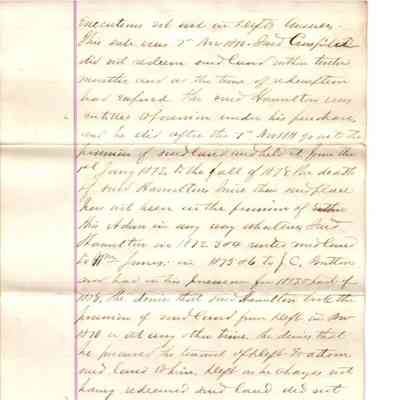 executions set out in Defts Answer.
This sale was 5" Nov 1870. Said Campfield
did not redeem said Land within twelve
months and as the time of redemption
had expired the said Hamilton was
entitled to possession under his purchase
and he did after the 5" Nov 1871 go into the
possession of said land and held it from the
1st Jany 1872 to the fall of 1878 the death
of said Hamilton since then said place
has not been in the possession of
his Admr in any way whatever. Said
Hamilton in 1872 3 & 4 rented said land
to Wm Jones. in 1875 & 6 to J. C.
and had in his possession for 1877 part of
1878. He denies that said Hamilton took the
possession of said Land from Deft in Nov
1870 or at any other time. he denies that
he procured the tenant of Deft to attorn
said Land to him. Deft as he charges not
having redeemed said land did not